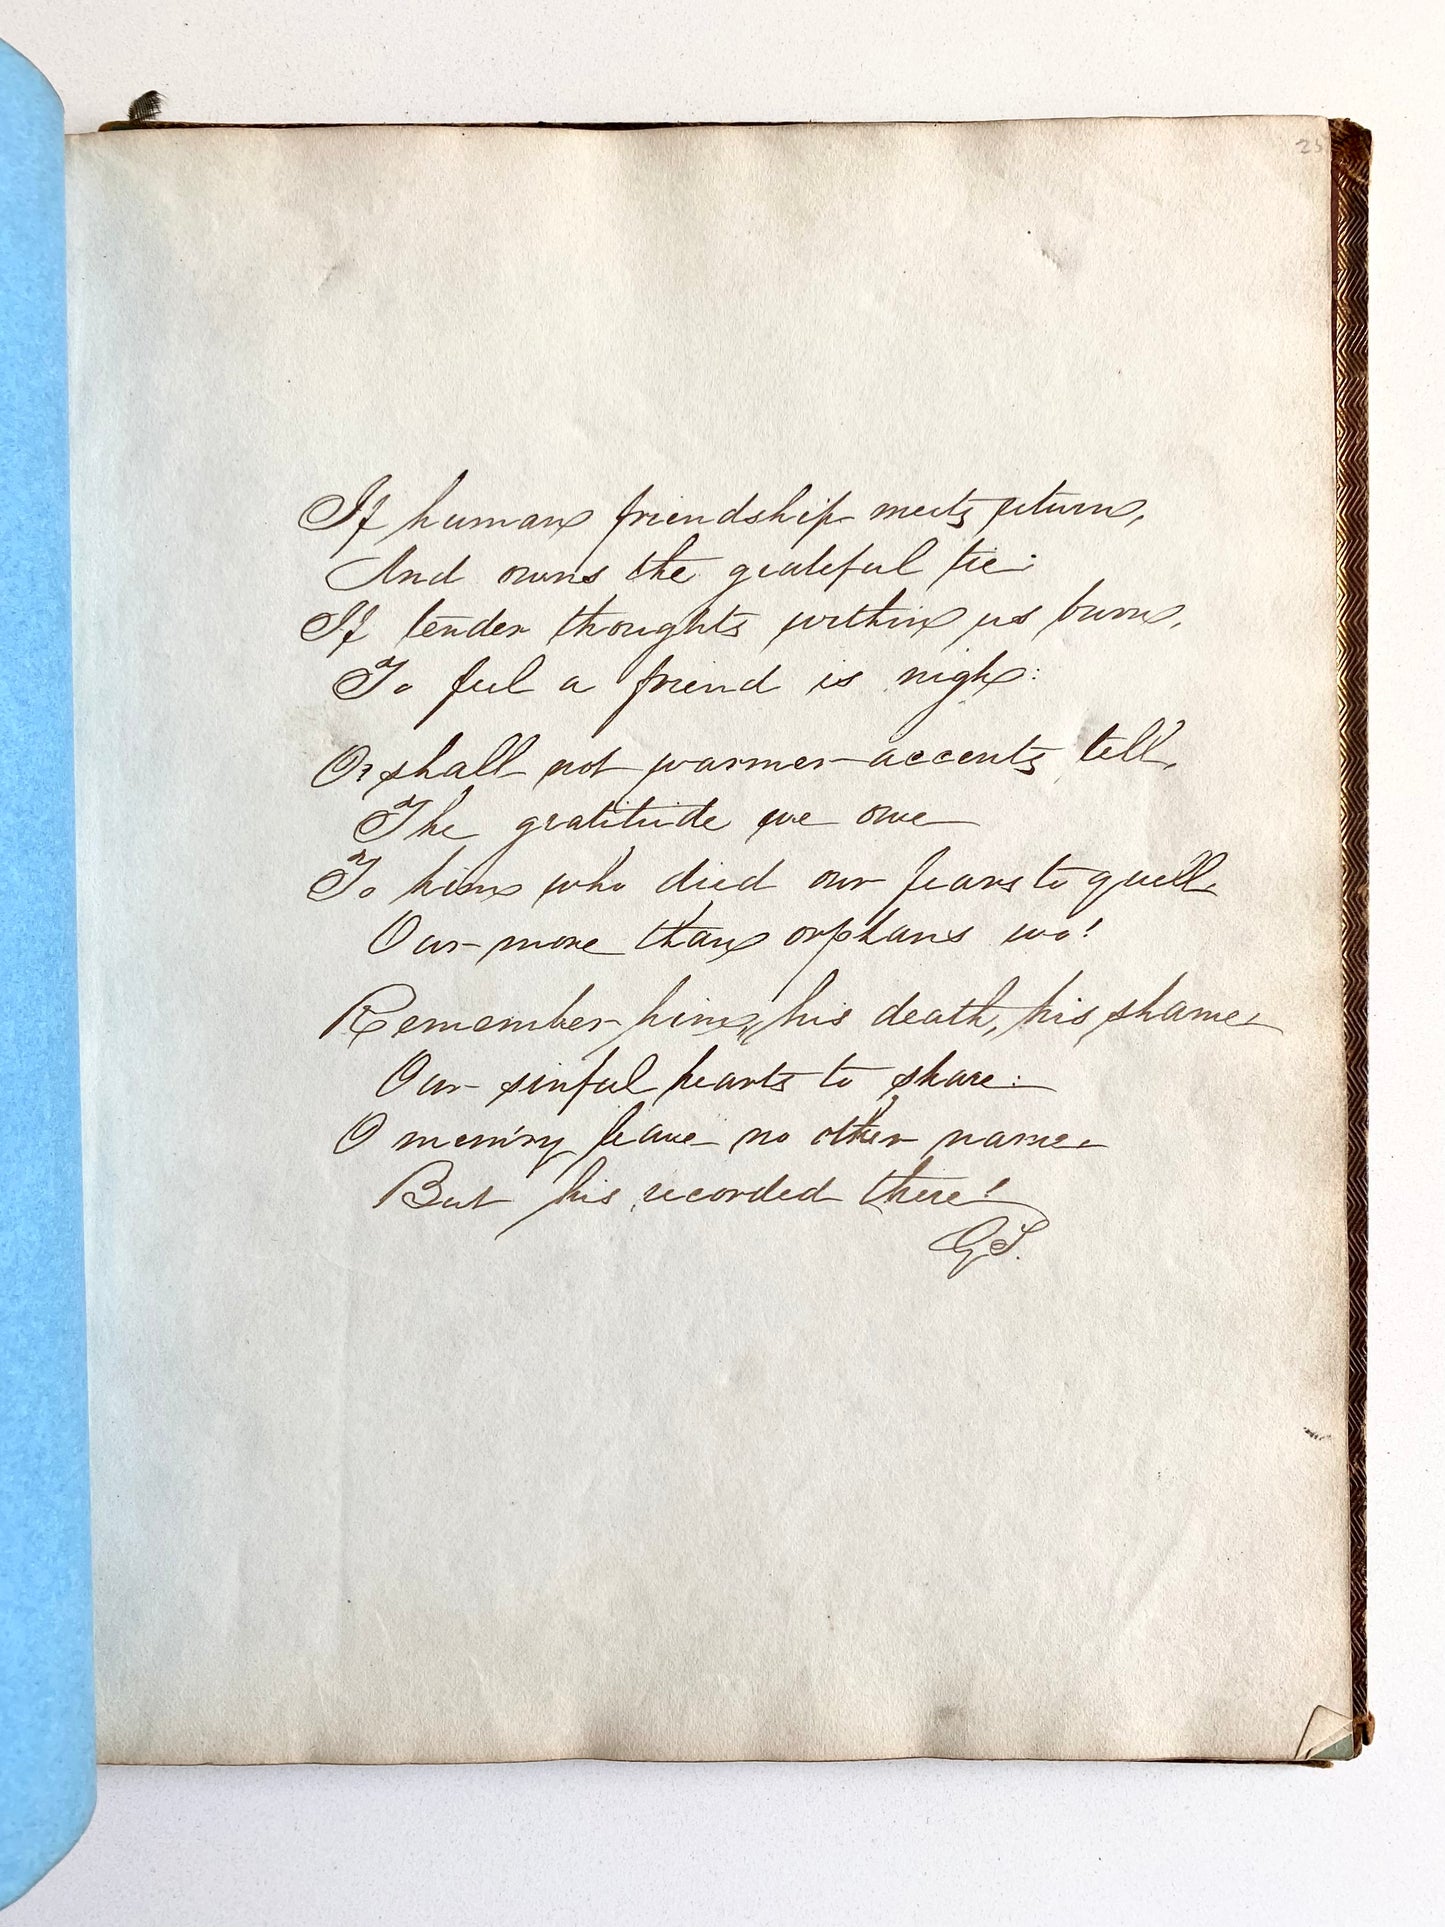 25
If human friendship meets return,
And owns the grateful tie:
If tender thoughts within us burn,
To feel a friend is nigh:
Or shall not warmer accents tell,
The gratitude we owe
To him who died our fears to quell,
Our more than orphans wo!
Remember him, his death, his shame,
Our sinful hearts to share:
O mem'ry leave no other name,
But his recorded there!
G.S.